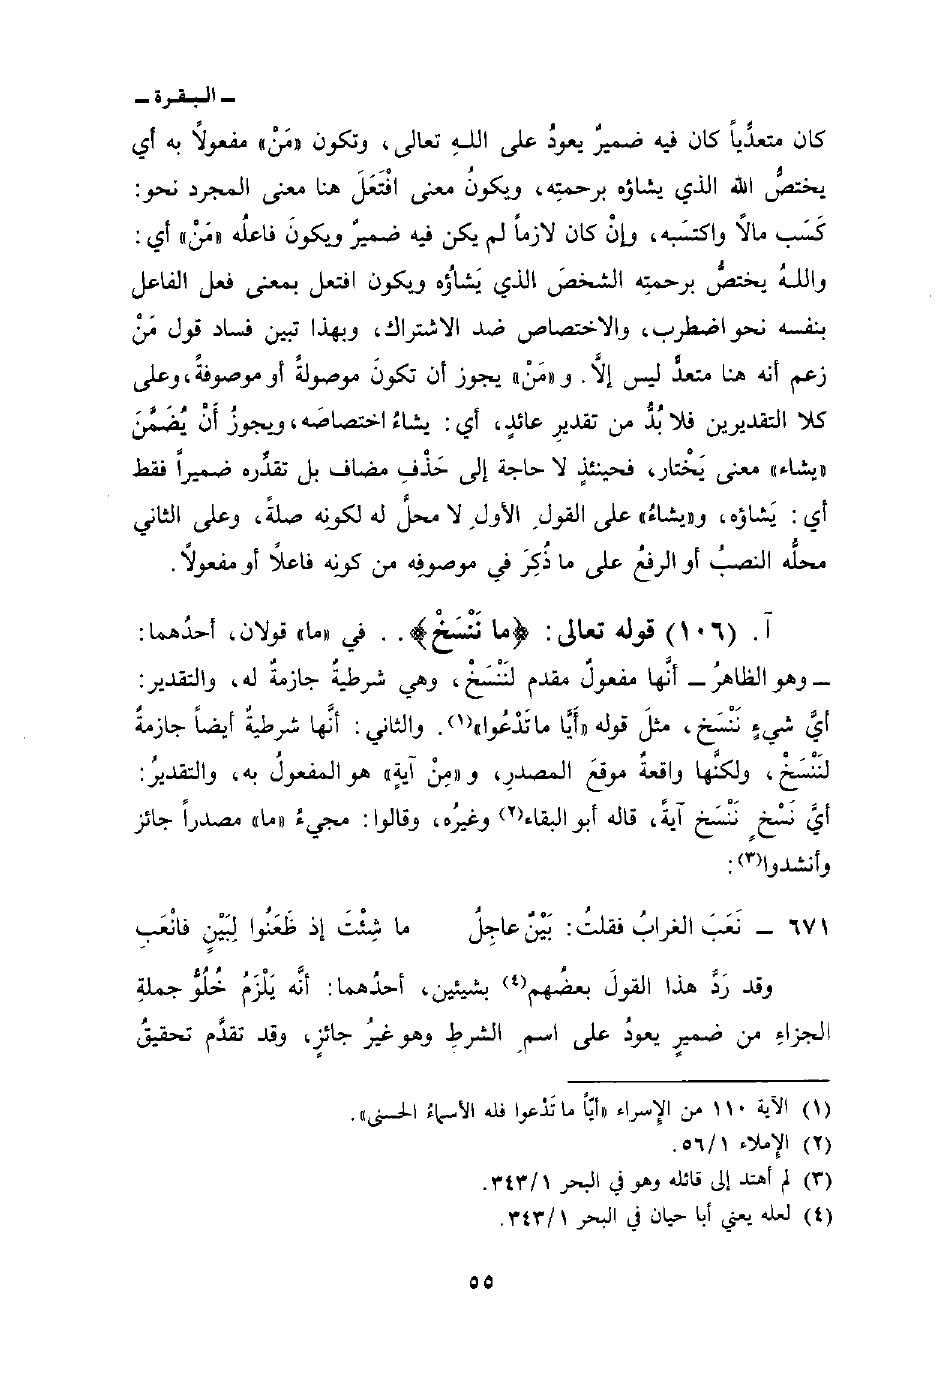 ـ البقرة ـ
كان متعدِّياً كان فيه ضميرٌ يعودُ على اللهِ تعالى، وتكون «مَنْ» مفعولاً به أي
يختصُّ الله الذي يشاؤه برحمتِه، ويكونُ معنى افْتَعَلَ هنا معنى المجرد نحو:
كَسَب مالاً واكتسَبه، وإنْ كان لازماً لم يكن فيه ضميرٌ ويكونُ فاعلُه «مَنْ» أي:
واللهُ يختصُّ برحمتِه الشخصَ الذي يَشاؤه ويكون افتعل بمعنى فعل الفاعل
بنفسه نحو اضطرب، والاختصاص ضد الاشتراك، وبهذا تبين فساد قول مَنْ
زعم أنه هنا متعدٌّ ليس إلَّا. و «مَنْ» يجوز أن تكونَ موصولةً أو موصوفةً، وعلى
كلا التقديرين فلا بُدَّ من تقديرِ عائدٍ، أي: يشاءُ اختصاصَه، ويجوزُ أَنْ يُضَمَّنَ
«يشاء» معنى يَخْتار، فحينئذٍ لا حاجة إلى حَذْفِ مضاف بل تقدِّره ضميراً فقط
أي: يَشاؤه، و«يشاءُ» على القولِ الأولِ لا محلَّ له لكونِه صلةً، وعلى الثاني
محلُّه النصبُ أو الرفعُ على ما ذُكِرَ في موصوفِه من كونِه فاعلاً أو مفعولاً.
آ. (١٠٦) قوله تعالى: ﴿ما نَنْسَخْ﴾.. في «ما» قولان، أحدُهما:
ـ وهو الظاهرُ ـ أنَّها مفعولٌ مقدم لنَنْسَخْ، وهي شرطيةٌ جازمةٌ له، والتقدير:
أيَّ شيءٍ نَنْسَخ، مثلَ قوله «أيَّاً ما تَدْعُوا»(١). والثاني: أنَّها شرطيةٌ أيضاً جازمةٌ
لنَنْسَخْ، ولكنَّها واقعةٌ موقعَ المصدرِ، و «مِنْ آيةٍ» هو المفعولُ به، والتقديرُ:
أيَّ نَسْخٍ نَنْسَخ آيةً، قاله أبو البقاء(٢) وغيرُه، وقالوا: مجيءُ «ما» مصدراً جائز
وأنشدوا(٣):
٦٧١ ـ نَعَبَ الغرابُ فقلتُ: بَيْنٌ عاجِلُ ما شِئْتَ إذ ظَعَنُوا لِبَيْنٍ فانْعَبِ
وقد رَدَّ هذا القولَ بعضُهم(٤) بشيئين، أحدُهما: أنَّه يَلْزَمُ خُلُوُّ جملةِ
الجزاءِ من ضميرٍ يعودُ على اسمِ الشرطِ وهو غيرُ جائزٍ، وقد تقدَّم تحقيقُ
(١) الآية ١١٠ من الإسراء «أيَّاً ما تَدْعوا فله الأسماءُ الحسنى».
(٢) الإملاء ٥٦/١.
(٣) لم أهتد إلى قائله وهو في البحر ٣٤٣/١.
(٤) لعله يعني أبا حيان في البحر ٣٤٣/١.
٥٥